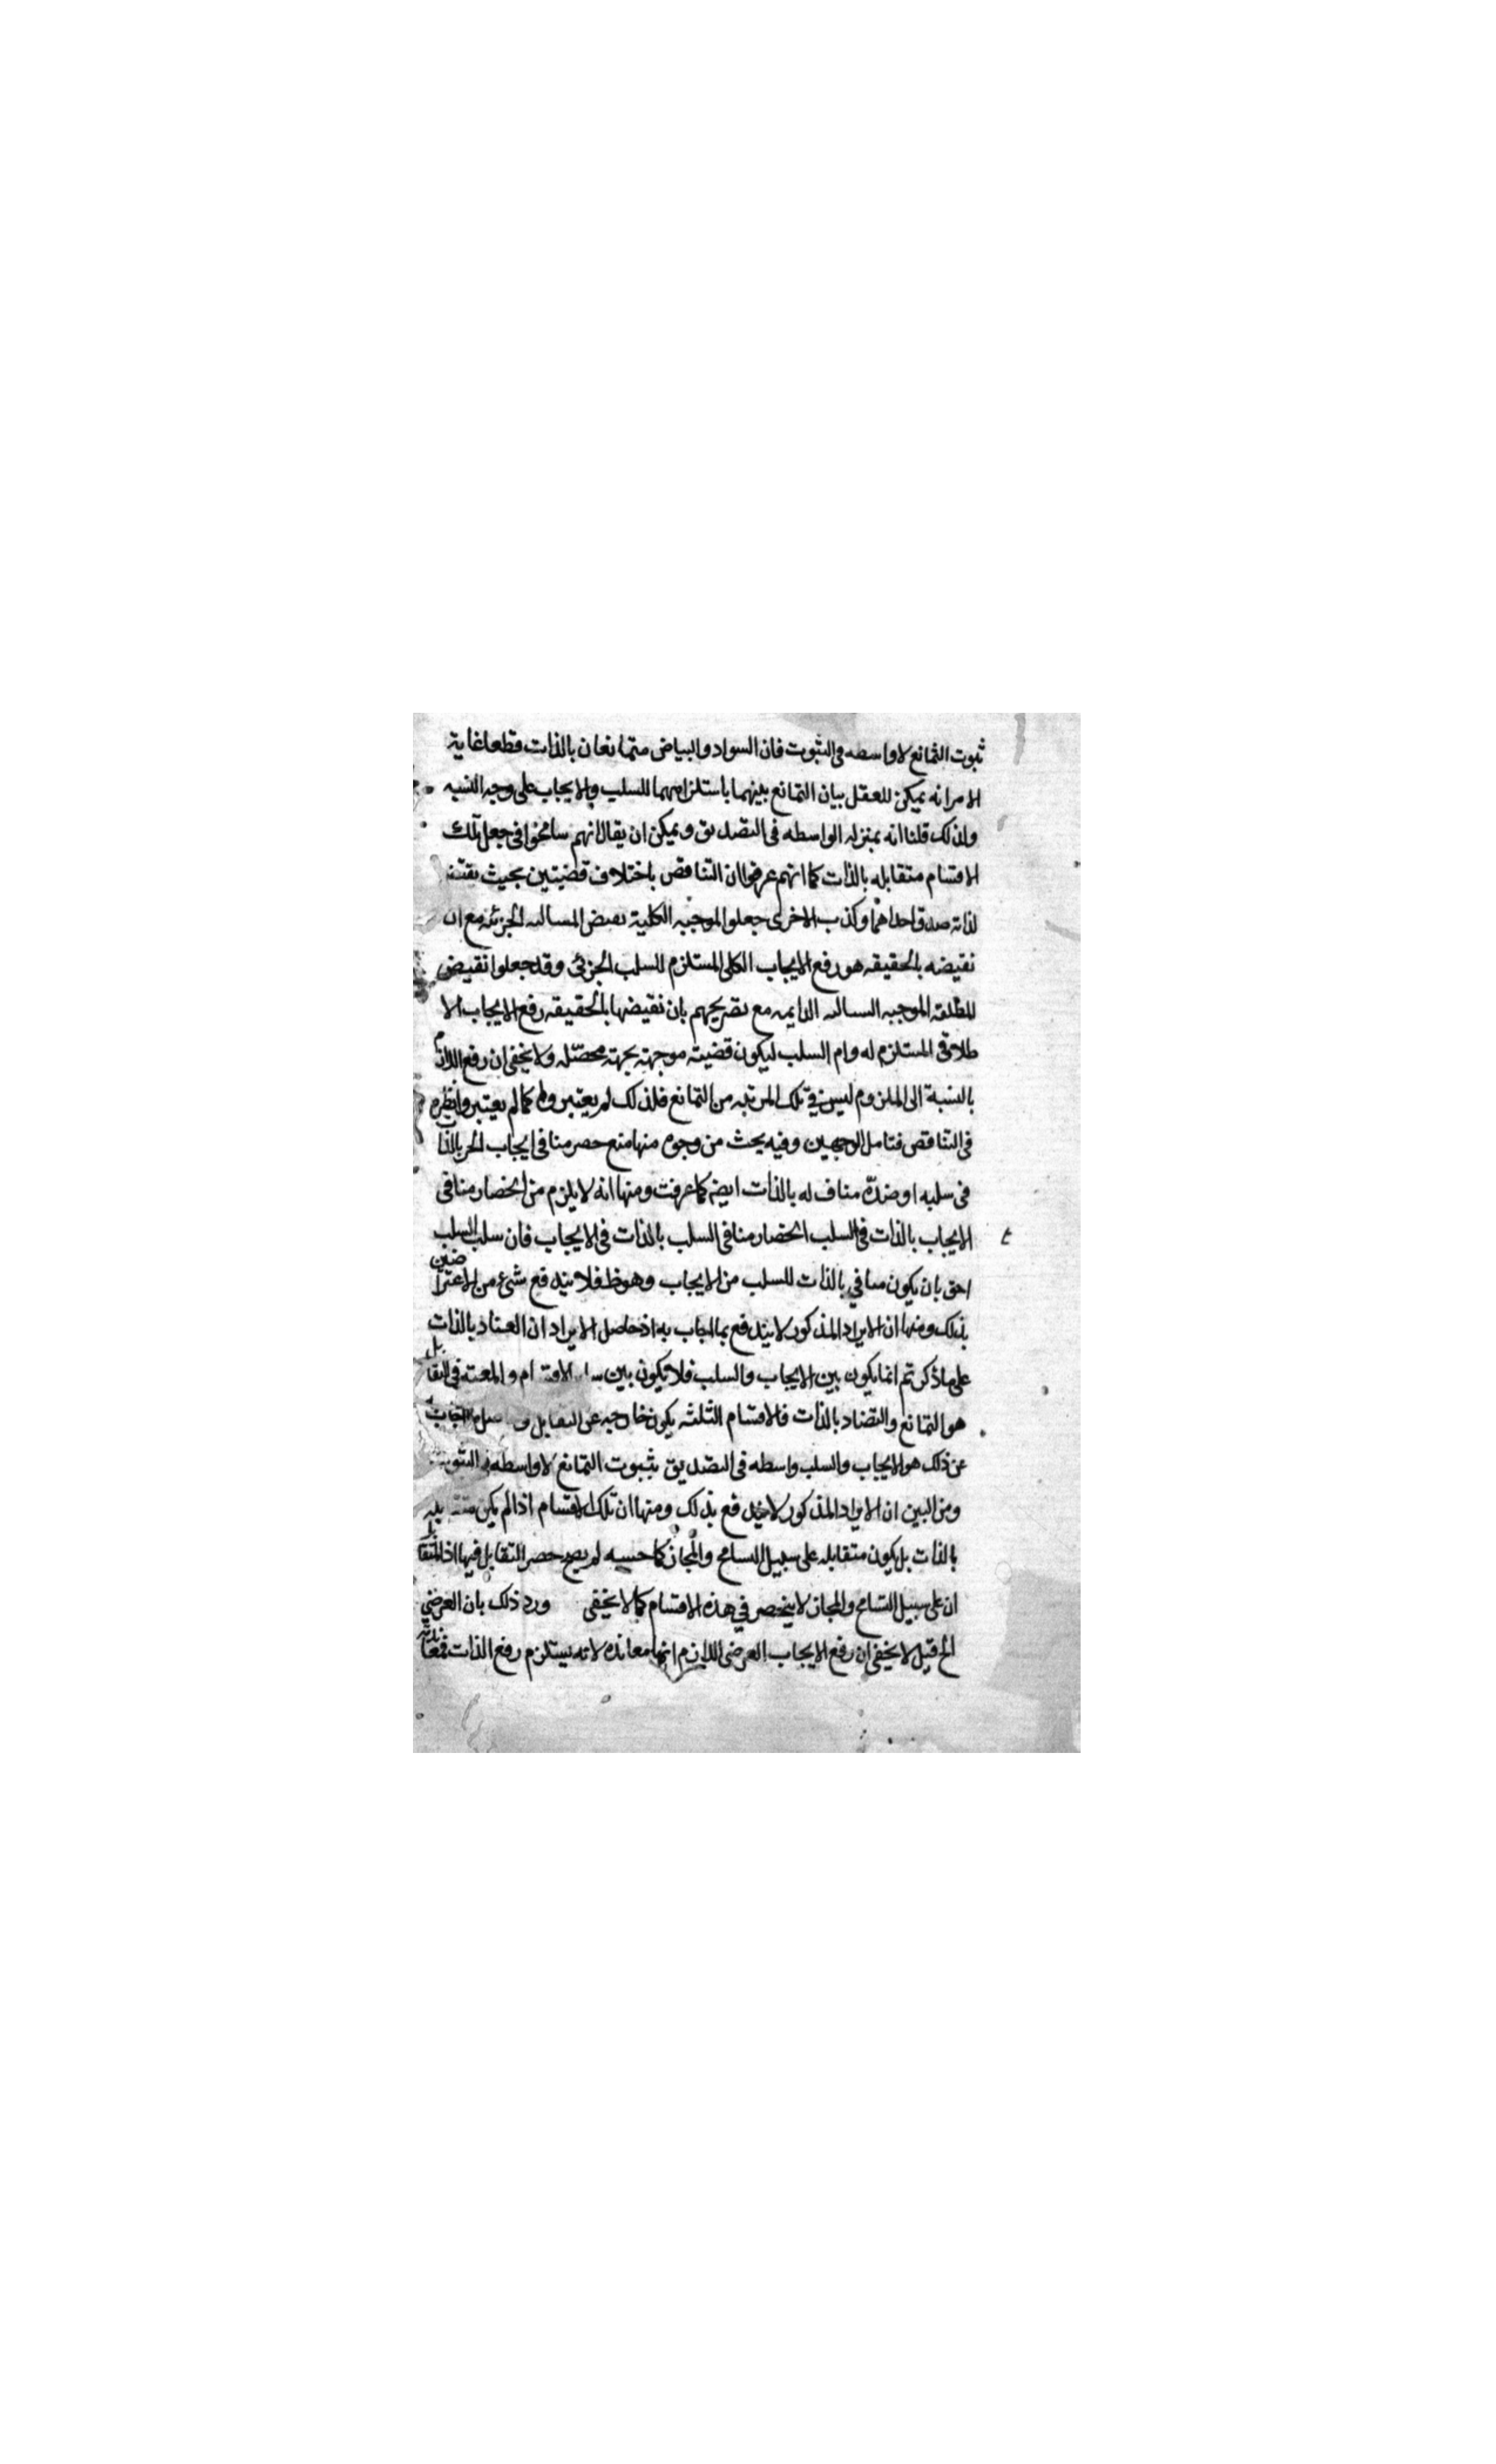 ثبوت التمانع لا واسطه فى الثبوت فان السواد والبياض متمانعان بالذات قطعا غاية
الامرانه يمكن للعقل بيان التمانع بينهما باستلزامهما للسلب والايجاب على وجه النسبه
ولذلك قلنا انه بمنزله الواسطه فى التصديق ويمكن ان يقال انهم سامحوا فى جعل تلك
الاقسام متقابله بالذات كما انهم عرفوا ان التناقض باختلاف قضيتين بحيث يقتضى
لذاته صدق احداهما وكذب الاخرى جعلوا الموجبه الكلية نقيض السالبه الجزئيه مع ان
نقيضه بالحقيقه هو رفع الايجاب الكلى المستلزم للسلب الجزئى وقد جعلوا نقيض
المطلقه الموجبه السالبه الدايمه مع تصريحهم بان نقيضها بالحقيقه رفع الايجاب الا
طلاقى المستلزم له دوام السلب ليكون قضيته موجهته بجهته محصّله ولا يخفى ان رفع اللازم
بالنسبة الى الملزوم ليس فى تلك المرتبه من التمانع فلذلك لم يعتبروه كما لم يعتبروا نظيره
فى التناقض فتامل الوجهين وفيه بحث من وجوه منها منع حصر منافى ايجاب الخير بالذات
فى سلبه او ضدّه مناف له بالذات ايضا كما عرفت ومنها انه لا يلزم من انحصار منافى
الايجاب بالذات فى السلب انحصار منافى السلب بالذات فى الايجاب فان سلب السلب
احق بان يكون منافى بالذات للسلب من الايجاب وهو ظ فلا يندفع شئ من الاعتراضين
بذلك ومنها ان الايراد المذكور لا يندفع بما اجاب به اذ حاصل الايراد ان العناد بالذات
على ما ذكرتم انما يكون بين الايجاب والسلب فلا يكون بين الاقسام والمعتبر فى التقابل
هو التمانع والتضاد بالذات فالاقسام الثلثه يكون خارجه عن التقابل وحاصل الجواب
عن ذلك هو الايجاب والسلب واسطه فى التصديق بثبوت التمانع لا واسطه فى الثبوت
ومن البين ان الايراد المذكور لا يندفع بذلك ومنها ان تلك الاقسام اذا لم يكن متقابله
بالذات بل يكون متقابله على سبيل التسامح والمجاز كما حسبه لم يصح حصر التقابل فيها اذ المتقابل
ان على سبيل التسامح والمجاز لا ينحصر فى هذه الاقسام كما لا يخفى ورد ذلك بان العرضى
الخ قيل لا يخفى ان رفع الايجاب العرضى اللازم انما معانده لانه يستلزم رفع الذات فمعاندته